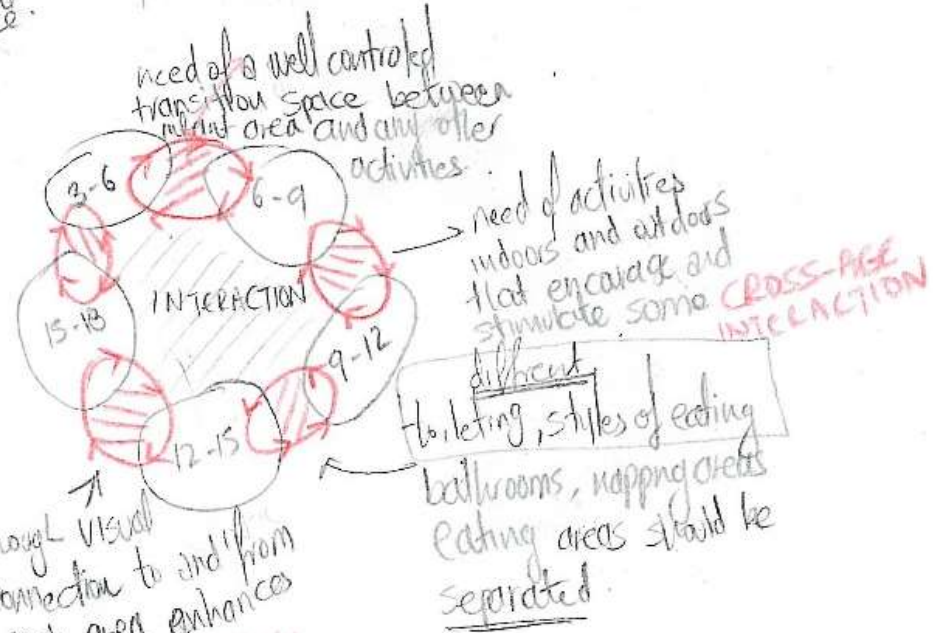 need of a well controled
transition space between
infant area and any other
activities.
3-6
6-9
9-12
12-15
15-18
INTERACTION
need of activities
indoors and outdoors
that encarage and
stimulate some CROSS-AGE
INTERACTION
different
toileting, styles of eating
bathrooms, napping areas
eating areas should be
separated.
visual
connection to and from
area enhances